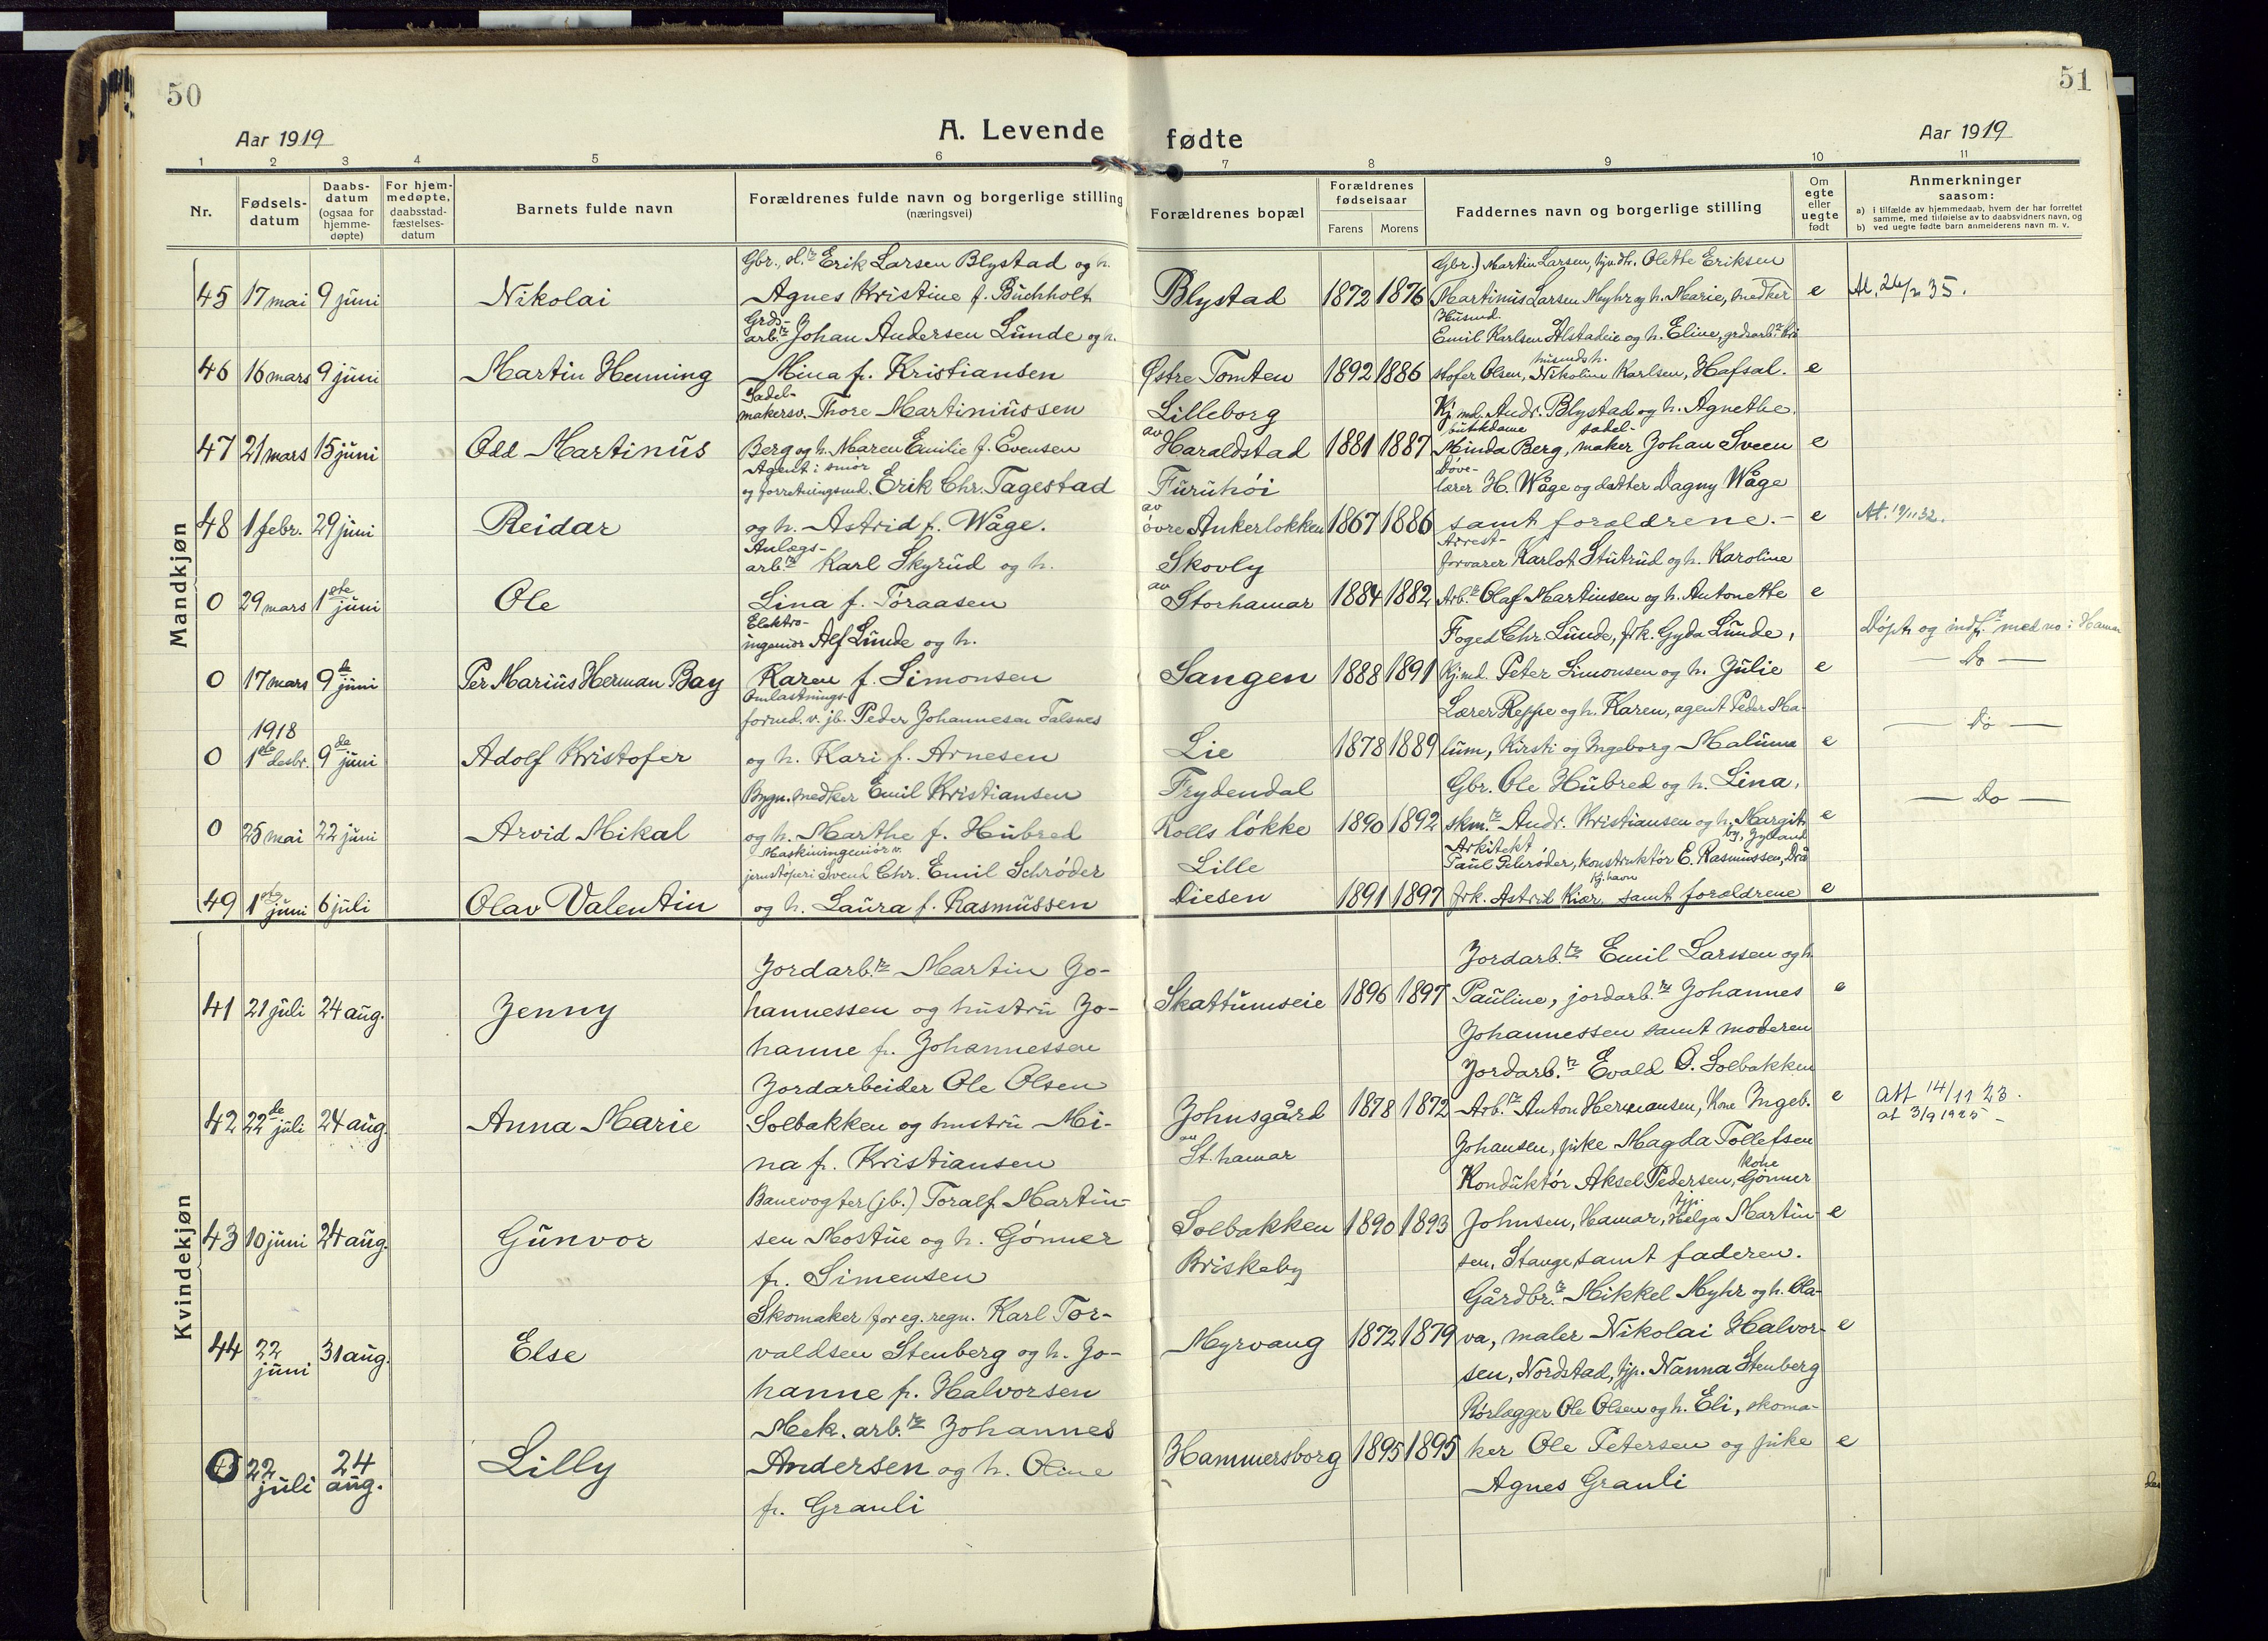 50
51
Aar 1919
A. Levende
fødte
Aar 1919
1 2 3 4 5 6 7 8 9 10 11
Nr.
Fødsels-
datum
Daabs-
datum
(ogsaa for
hjemme-
døpte)
For hjem-
medøpte,
daabsstad-
fæstelses-
datum
Barnets fulde navn
Forældrenes fulde navn og borgerlige stilling
(næringsvei)
Forældrenes bopæl
Forældrenes
fødselsaar
Farens Morens
Faddernes navn og borgerlige stilling
Om
egte
eller
uegte
født
Anmerkninger
saasom:
a) i tilfælde av hjemmedaab, hvem der har forrettet
samme, med tilføielse av to daabsvidners navn, og
b) ved uegte fødte barn anmelderens navn m. v.
Mandkjøn
45 17 mai 9 juni
Nikolai
Erik Larsen Blystad og h.
Agnes Kristine f. Buchholt
Blystad 1872 1876
Gbr. Martin Larsen, Olette Eriksen
Martinus Larsen Myhr og h. Marie, medker
e
At. 26/2 35.
46 16 mars 9 juni
Martin Henning
Grds-
arb.r Johan Andersen Lunde og h.
Mina f. Kristiansen
Østre Tomten 1892 1886
Husmd.
Emil Karlsen Alstadeie og h. Eline, grdsarb.r Kri
husmds h.
stofer Olsen, Nikoline Karlsen, Hafsal.
e
47 21 mars 15 juni
Odd Martinus
Sadel-
makersv. Thore Martiniussen
Berg og h. Maren Emilie f. Evensen
Lilleborg
av
Haraldstad 1881 1887
Kj.md. Andr. Blystad og h. Agnethe.
butikdame sadel-
Minda Berg, maker Johan Sveen
e
48 1 febr. 29 juni
Reidar
Agent i smør
og forretningsmd. Erik Chr. Tagestad
og h. Astrid f. Wåge.
Furuhöi
av
övre Ankerløkken 1867 1886
Döve-
lærer H. Wåge og datter Dagny Wåge
samt forældrene. -
e
At. 19/11 32.
0 29 mars 1ste juni
Ole
Anlægs-
arb.r Karl Skyrud og h.
Lina f. Toraasen
Skovly
av
Storhamar 1884 1882
Arrest-
forvarer Karlot Stutrud og h. Karoline
Arb.r Olaf Martinsen og h. Antonette
e
Döpt og indf. med no i Hamar
0 17 mars 9de juni
Per Marius Herman Bay
Elektro-
ingeniör Alf Lunde og h.
Karen f. Simonsen
Sangen 1888 1891
Foged Chr. Lunde, frk. Gyda Lunde,
Kj.md. Peter Simonsen og h. Julie
e
— Do —
0 1918
1ste desbr. 9de juni
Adolf Kristofer
Omlastnings-
formd. v. jb. Peder Johannesen Falsnes
og h. Kari f. Arnesen
Lie 1878 1889
Lærer Reppe og h. Karen, agent Peder Ma-
lum, Kirsti og Ingeborg Malum
e
— Do —
0 25 mai 22 juni
Arvid Mikal
Bygn. medker Emil Kristiansen
og h. Marthe f. Hubred
Frydendal
Rolls løkke 1890 1892
Gbr. Ole Hubred og h. Lina,
skm.r Andr. Kristiansen og h. Margit.
e
— Do —
49 1ste juni 6 juli
Olav Valentin
Maskiningeniør v.
jernstøperi Svend Chr. Emil Schrøder
og h. Laura f. Rasmussen
Lille
Diesen 1891 1897
Arkitekt
Paul Schrøder, konstruktör E. Rasmussen,
Kj.havn
frk. Astrid Kiær samt forældrene
e
Kvindekjøn
41 21 juli 24 aug.
Jenny
Jordarb.r Martin Jo-
hannessen og hustru Jo-
hanne f. Johannessen
Skattumseie 1896 1897
Jordarb.r Emil Larssen og h.
Pauline, jordarb.r Johannes
Johannessen samt moderen
e
42 22de juli 24 aug.
Anna Marie
Jordarbeider Ole Olsen
Solbakken og hustru Mi-
na f. Kristiansen
Johnsgård
av
St.hamar
1878 1872
Jordarb.r Evald O. Solbakken
Arb.r Anton Hermansen, kone Ingeb.
Johansen, pike Magda Tollefsen
e
Att 14/11 23.
at 3/9 1925 -
43 10 juni 24 aug.
Gunvor
Banevogter (jb.) Toralf Martin-
sen Mostue og h. Gönner
f. Simensen
Solbakken
Briskeby
1890 1893
Konduktör Aksel Pedersen, kone Gönner
Johnsen, Hamar, tjp. Helga Martin-
sen, Stange samt faderen.
e
44 22 juni 31 aug.
Else
Skomaker for eg. regn. Karl Tor-
valdsen Stenberg og h. Jo-
hanne f. Halvorsen
Myrvang 1872 1879
Gårdbr.r Mikkel Myhr og h. Ola-
va, maler Nikolai Halvor-
sen, Nordstad, tjp. Nanna Stenberg
e
0 22 juli 24 aug.
Lilly
Mek. arb.r Johannes
Andersen og h. Oline
f. Granli
Hammersborg 1895 1895
Rørlægger Ole Olsen og h. Eli, skoma-
ker Ole Petersen og pike
Agnes Granli
e